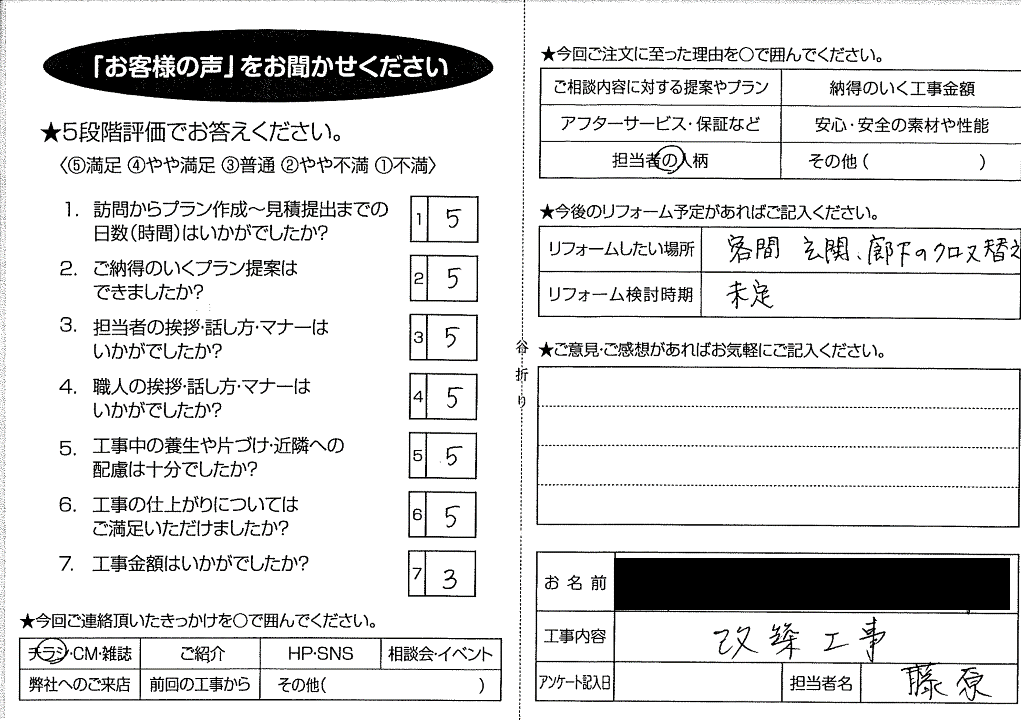 「お客様の声」をお聞かせください
★5段階評価でお答えください。
〈⑤満足 ④やや満足 ③普通 ②やや不満 ①不満〉
1. 訪問からプラン作成〜見積提出までの
日数(時間)はいかがでしたか?
1 5
2. ご納得のいくプラン提案は
できましたか?
2 5
3. 担当者の挨拶・話し方・マナーは
いかがでしたか?
3 5
4. 職人の挨拶・話し方・マナーは
いかがでしたか?
4 5
5. 工事中の養生や片づけ・近隣への
配慮は十分でしたか?
5 5
6. 工事の仕上がりについては
ご満足いただけましたか?
6 5
7. 工事金額はいかがでしたか?
7 3
★今回ご連絡頂いたきっかけを○で囲んでください。
チラシ・CM・雑誌 ご紹介 HP・SNS 相談会・イベント
弊社へのご来店 前回の工事から その他( )
谷折り
★今回ご注文に至った理由を○で囲んでください。
ご相談内容に対する提案やプラン 納得のいく工事金額
アフターサービス・保証など 安心・安全の素材や性能
担当者の人柄 その他( )
★今後のリフォーム予定があればご記入ください。
リフォームしたい場所 客間 玄関、廊下のクロス替え
リフォーム検討時期 未定
★ご意見・ご感想があればお気軽にご記入ください。
お名前
工事内容 改築工事
アンケート記入日 担当者名 藤原